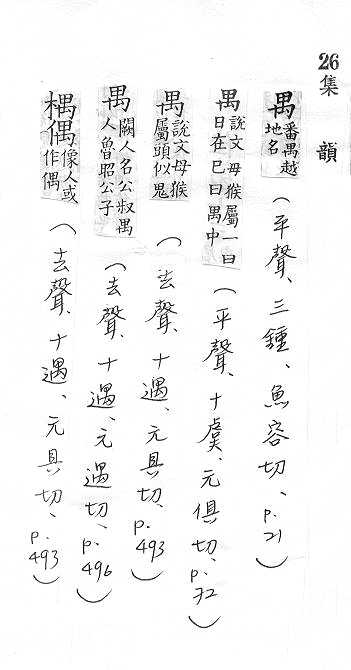 26集韻
禺番禺越地名(平聲、三鍾、魚容切、p.21)
禺說文母猴屬一曰日在巳曰禺中(平聲、十虞、元俱切、p.72)
禺說文母猴屬頭似鬼(去聲、十遇、元具切、p.493)
禺闕人名公叔禺人魯昭公子(去聲、十遇、元遇切、p.496)
楀偶像人或作偶(去聲、十遇、元具切、p.493)